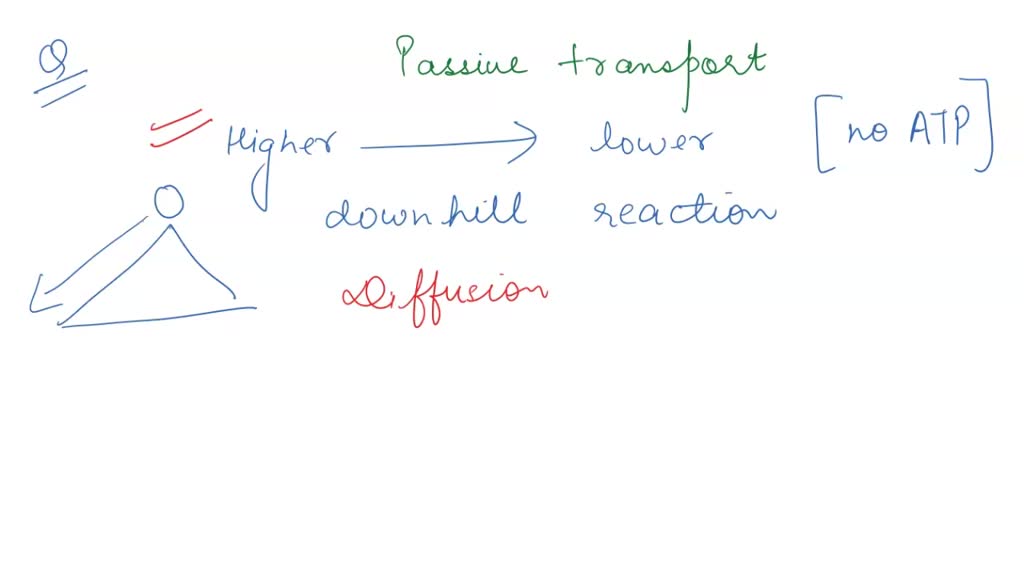 Q
Passive transport
Higher → lower [no ATP]
downhill reaction
Diffusion